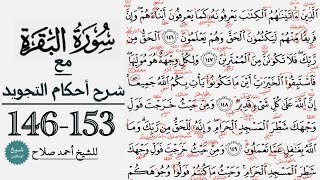 سُورَةُ البَقَرَةِ
مع
شرح أحكام التجويد
146-153
للشيخ أحمد صلاح
الَّذِينَ ءَاتَيْنَاهُمُ الْكِتَابَ يَعْرِفُونَهُ كَمَا يَعْرِفُونَ أَبْنَاءَهُمْ وَإِنَّ
فَرِيقًا مِنْهُمْ لَيَكْتُمُونَ الْحَقَّ وَهُمْ يَعْلَمُونَ ١٤٦ الْحَقُّ مِنْ
رَبِّكَ فَلَا تَكُونَنَّ مِنَ الْمُمْتَرِينَ ١٤٧ وَلِكُلٍّ وِجْهَةٌ هُوَ مُوَلِّيهَا
فَاسْتَبِقُوا الْخَيْرَاتِ أَيْنَ مَا تَكُونُوا يَأْتِ بِكُمُ اللَّهُ جَمِيعًا
إِنَّ اللَّهَ عَلَى كُلِّ شَيْءٍ قَدِيرٌ ١٤٨ وَمِنْ حَيْثُ خَرَجْتَ فَوَلِّ
وَجْهَكَ شَطْرَ الْمَسْجِدِ الْحَرَامِ وَإِنَّهُ لَلْحَقُّ مِنْ رَبِّكَ وَمَا
اللَّهُ بِغَافِلٍ عَمَّا تَعْمَلُونَ ١٤٩ وَمِنْ حَيْثُ خَرَجْتَ فَوَلِّ وَجْهَكَ
شَطْرَ الْمَسْجِدِ الْحَرَامِ وَحَيْثُ مَا كُنْتُمْ فَوَلُّوا وُجُوهَكُمْ